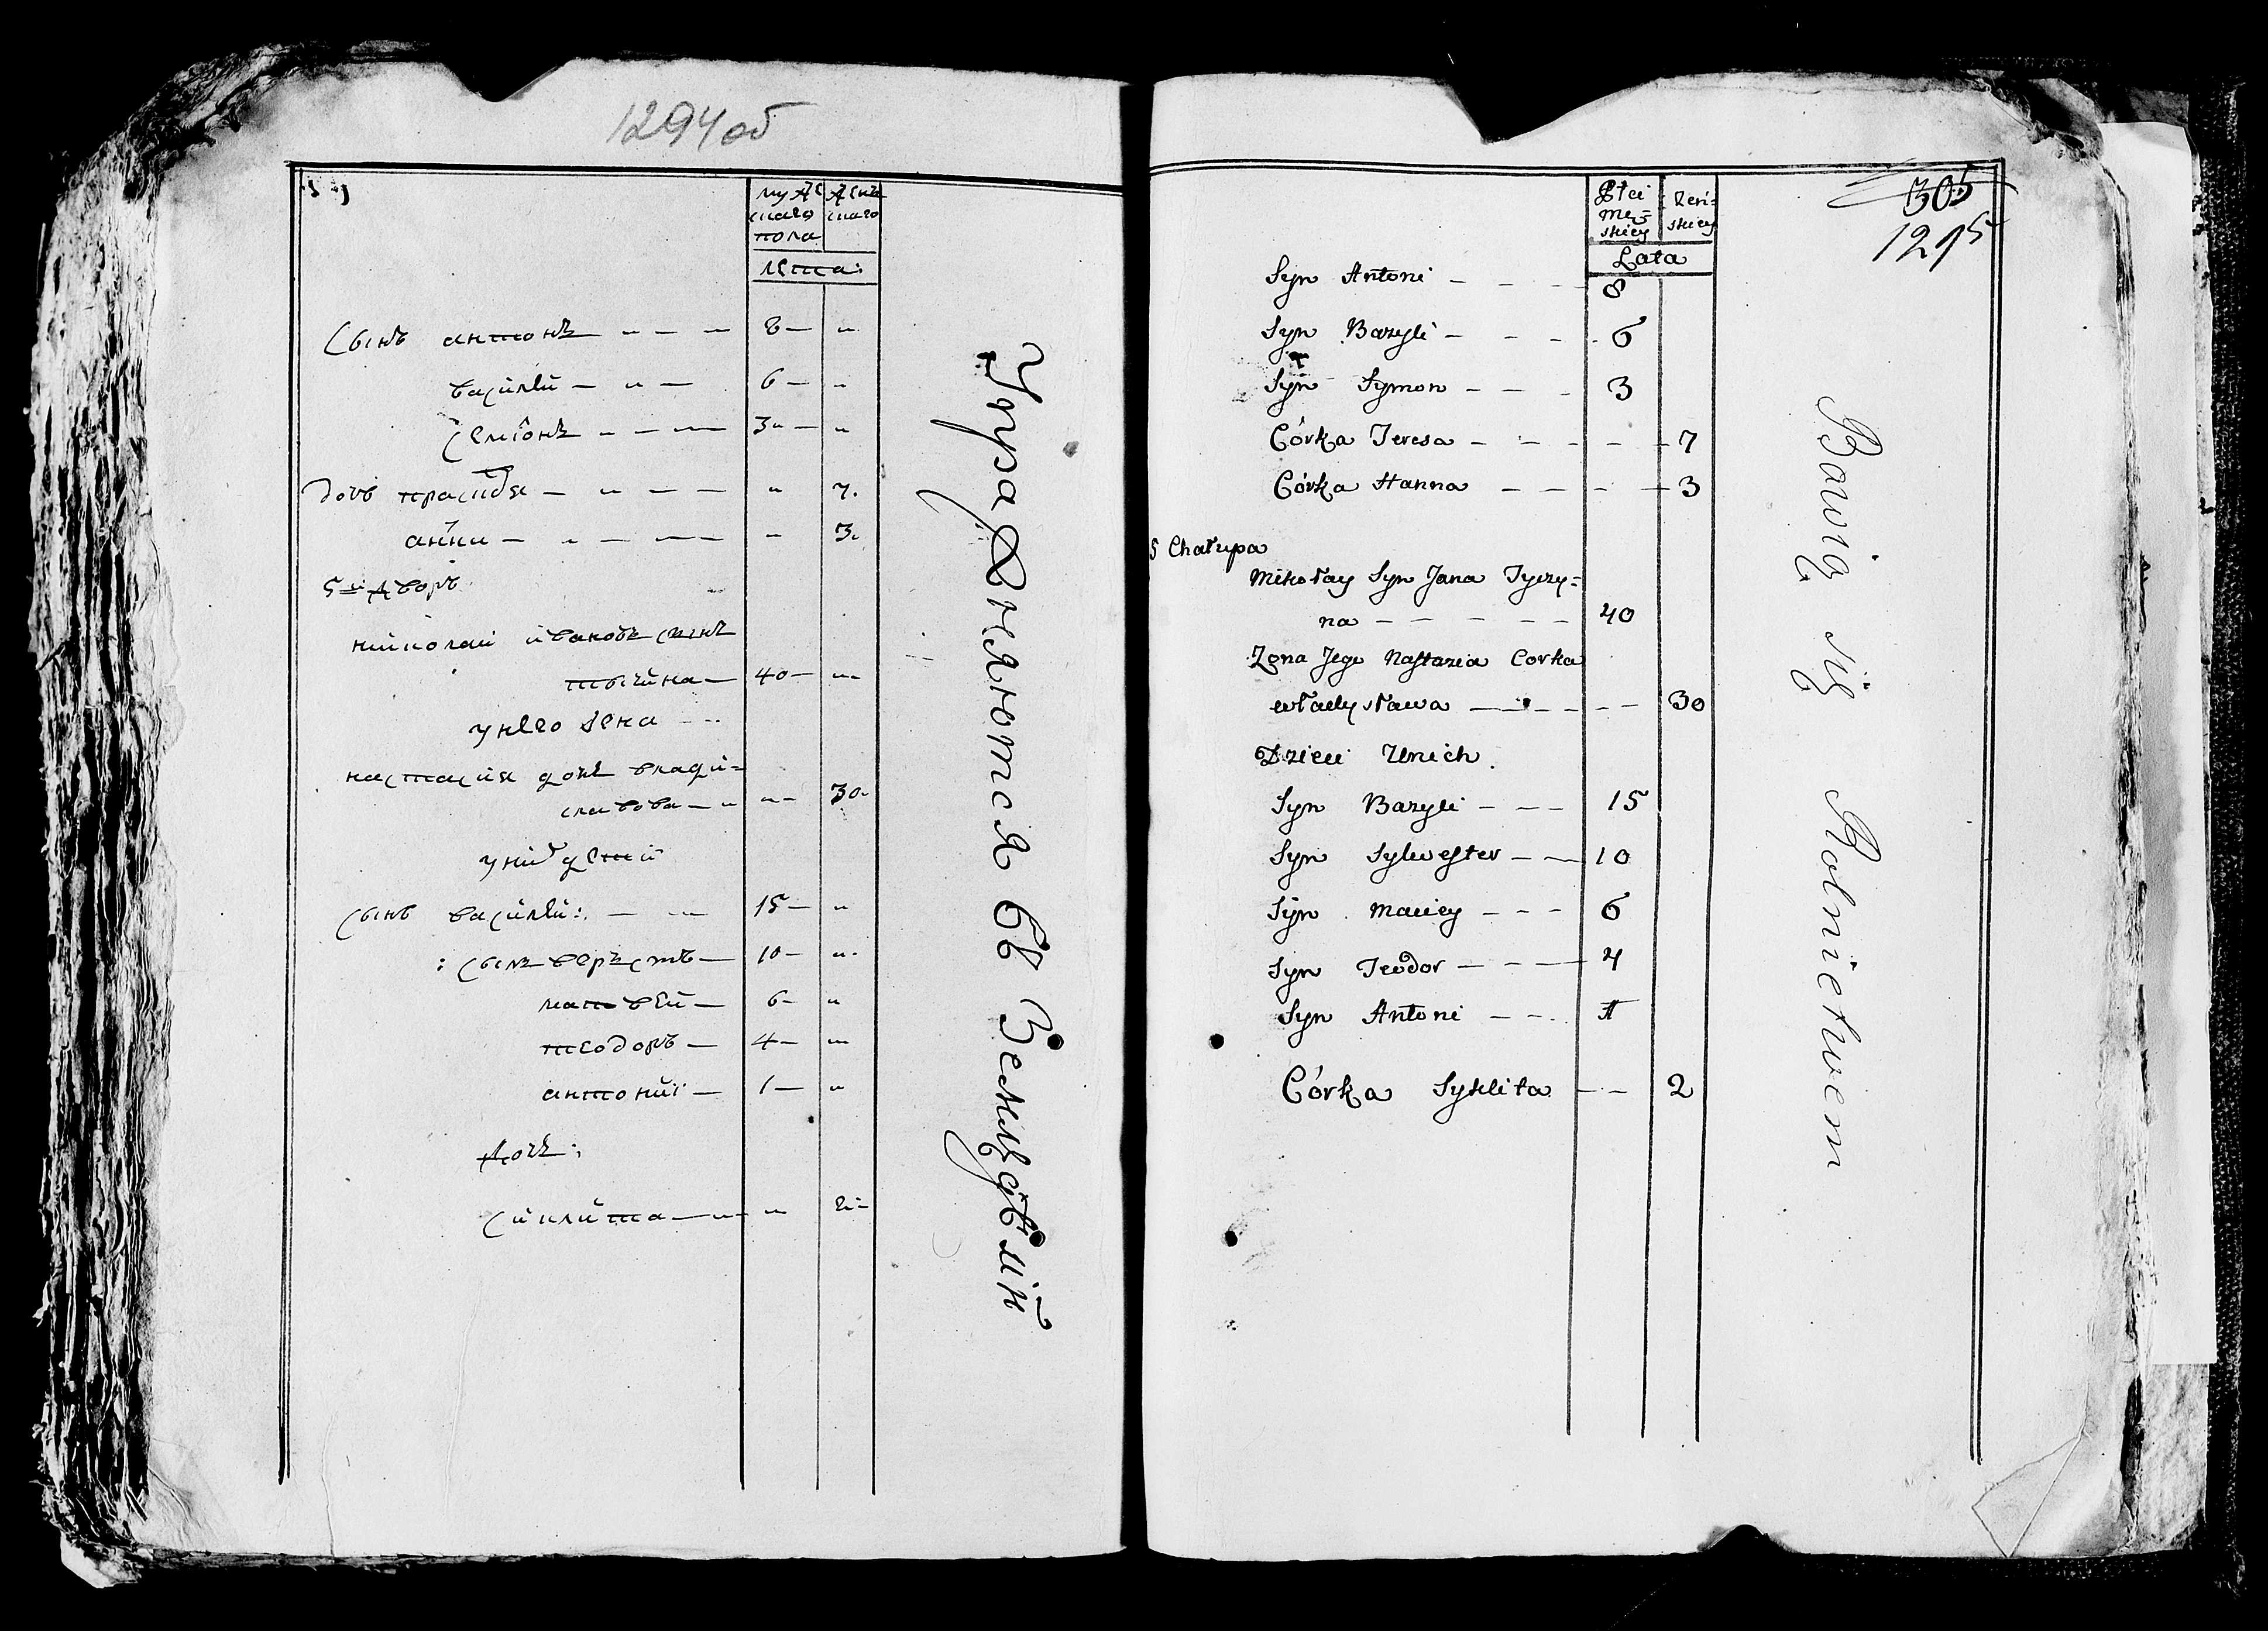 1294 об
муже
скаго
пола
женс
скаго
лета:
Сынъ антонъ 8
василiй 6
семiонъ 3
дочь 7.
анна 3.
5 й дворъ
николай ивановъ сынъ
тычина 40
у него жена
настасия дочь влади=
славова 30
у них дети
сынъ василiй: 15
: 10
матвей 6
теодоръ 4
антонiй 1
дочь:
сиклита 2
Упражняются въ Земледѣлiи
305
1295
Płci
Mę=
skiey
Żeń=
skiey
Lata
Syn Antoni 8
Syn Bazyli 6
Syn Symon 3
Córka Teresa 7
Córka Hanna 3
5 Chałupa
Mikołay Syn Jana Tyczy=
na 40
Zona Jego Nastazia Corka
władysława 30
Dzieci Unich
Syn Bazyli 15
Syn Sylwester 10
Syn Maciey 6
Syn Teodor 4
Syn Antoni 1
Córka Syklita 2
Bawią się Rolnictwem